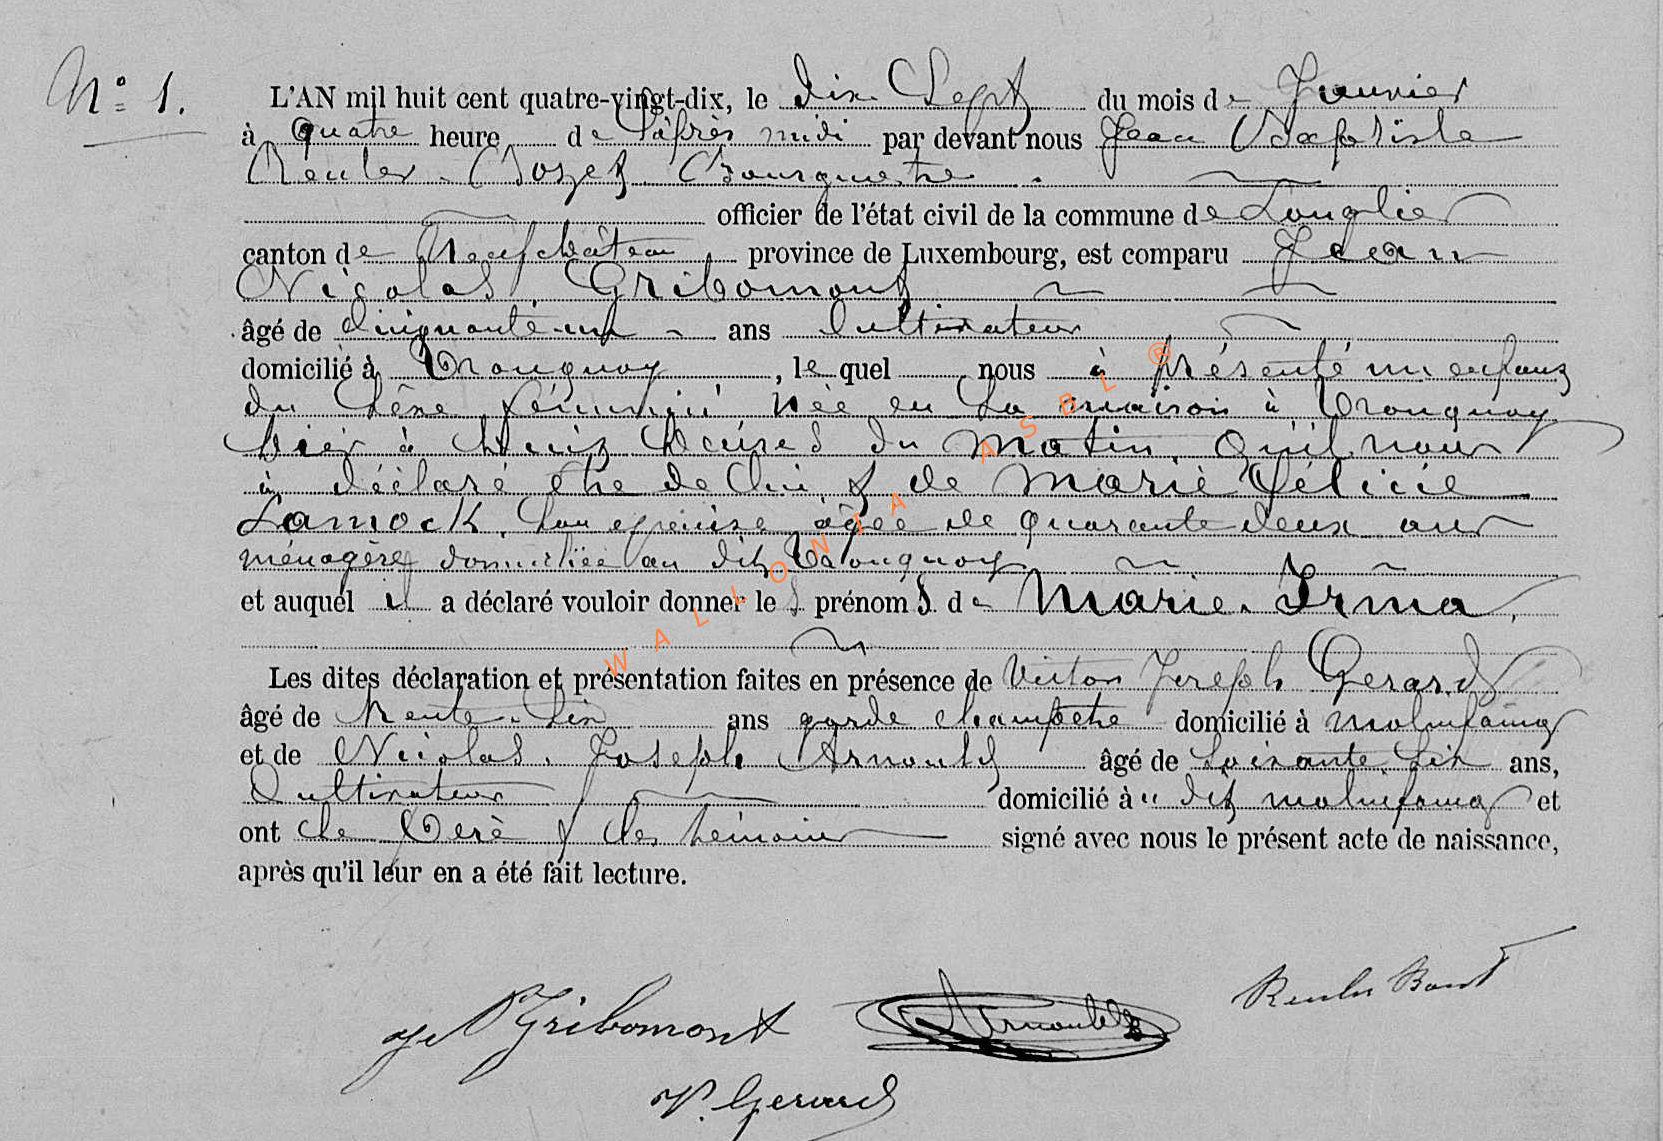 N° 1.
L'AN mil huit cent quatre-vingt-dix, le dix Sept du mois de Janvier
à quatre heure de l'après midi par devant nous Jean Baptiste
Reuler Bourgmestre
officier de l'état civil de la commune de Longlier
canton de Neufchâteau province de Luxembourg, est comparu Jean
Nicolas Gribomont
âgé de cinquante-un ans Cultivateur
domicilié à Tronquoy, le quel nous à présenté un enfant
du Sêxe féminin née en Sa maison à Tronquoy
hier à huit heures du matin, qu'il nous
à déclaré être de lui & de Marie Félicie
Lamock, Son epouse agée de quarante deux ans
ménagère domiciliée au dit Tronquoy
et auquel il a déclaré vouloir donner les prénomS de Marie. Irma,
Les dites déclaration et présentation faites en présence de Victor Joseph Gerard
âgé de trente-Six ans garde champetre domicilié à molinfaing
et de Nicolas. Joseph Arnould âgé de Soixante Six ans,
Cultivateur domicilié à " dit molinfaing et
ont le Père & les témoins signé avec nous le présent acte de naissance,
après qu'il leur en a été fait lecture.
Gribomont Arnould Reuler
V. Gerard
WALLONIA ASBL ®